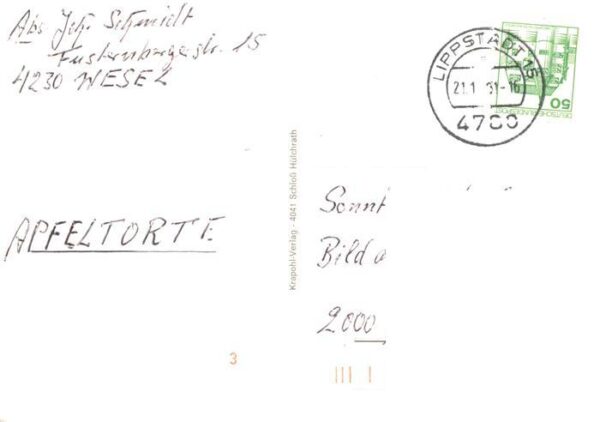 Abs Joh. Schmidt
Fusternbergerstr. 15
4230 WESEL
LIPPSTADT 15
21.1
-16
4780
50
DEUTSCHE BUNDESPOST
Krapohl-Verlag - 4041 Schloß Hülchrath
APFELTORTE
Sonnt
Bild a
2000
3